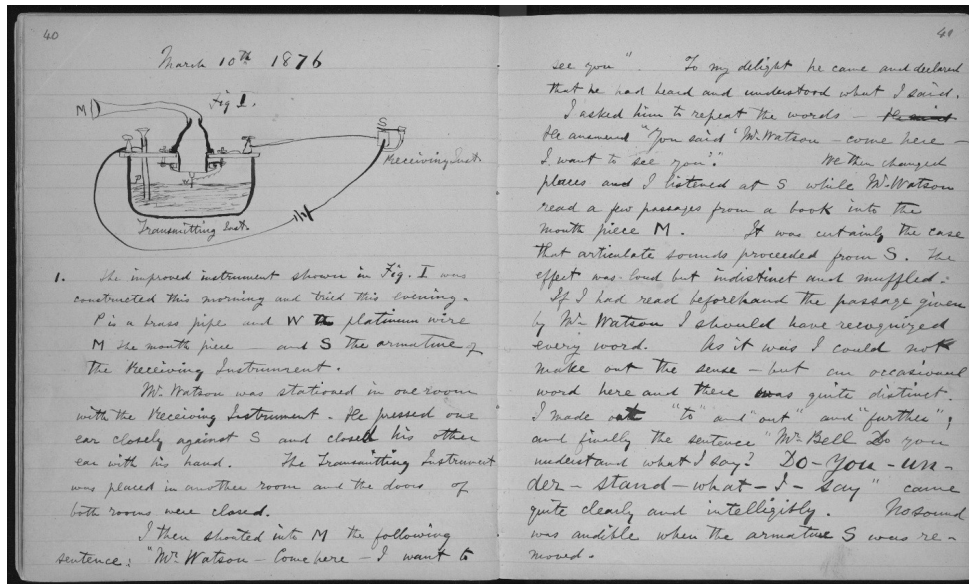 40
March 10th 1876
Fig I.
M
S
Receiving Inst.
P
W
Transmitting Inst.
1. The improved instrument shown in Fig. I was
constructed this morning and tried this evening.
P is a brass pipe and W platinum wire
M the mouth piece — and S the armature of
the Receiving Instrument.
Mr. Watson was stationed in one room
with the Receiving Instrument. He pressed one
ear closely against S and closed his other
ear with his hand. The Transmitting Instrument
was placed in another room and the doors of
both rooms were closed.
I then shouted into M the following
sentence: "Mr. Watson — Come here — I want to
41
see you". To my delight he came and declared
that he had heard and understood what I said.
I asked him to repeat the words —
He answered "You said 'Mr. Watson — come here —
I want to see you'." We then changed
places and I listened at S while Mr. Watson
read a few passages from a book into the
mouth piece M. It was certainly the case
that articulate sounds proceeded from S. The
effect was loud but indistinct and muffled.
If I had read beforehand the passage given
by Mr. Watson I should have recognized
every word. As it was I could not
make out the sense — but an occasional
word here and there was quite distinct.
I made out "to" and "out" and "further";
and finally the sentence "Mr. Bell Do you
understand what I say? Do — you — un-
der — stand — what — I — say" came
quite clearly and intelligibly. No sound
was audible when the armature S was re-
moved.